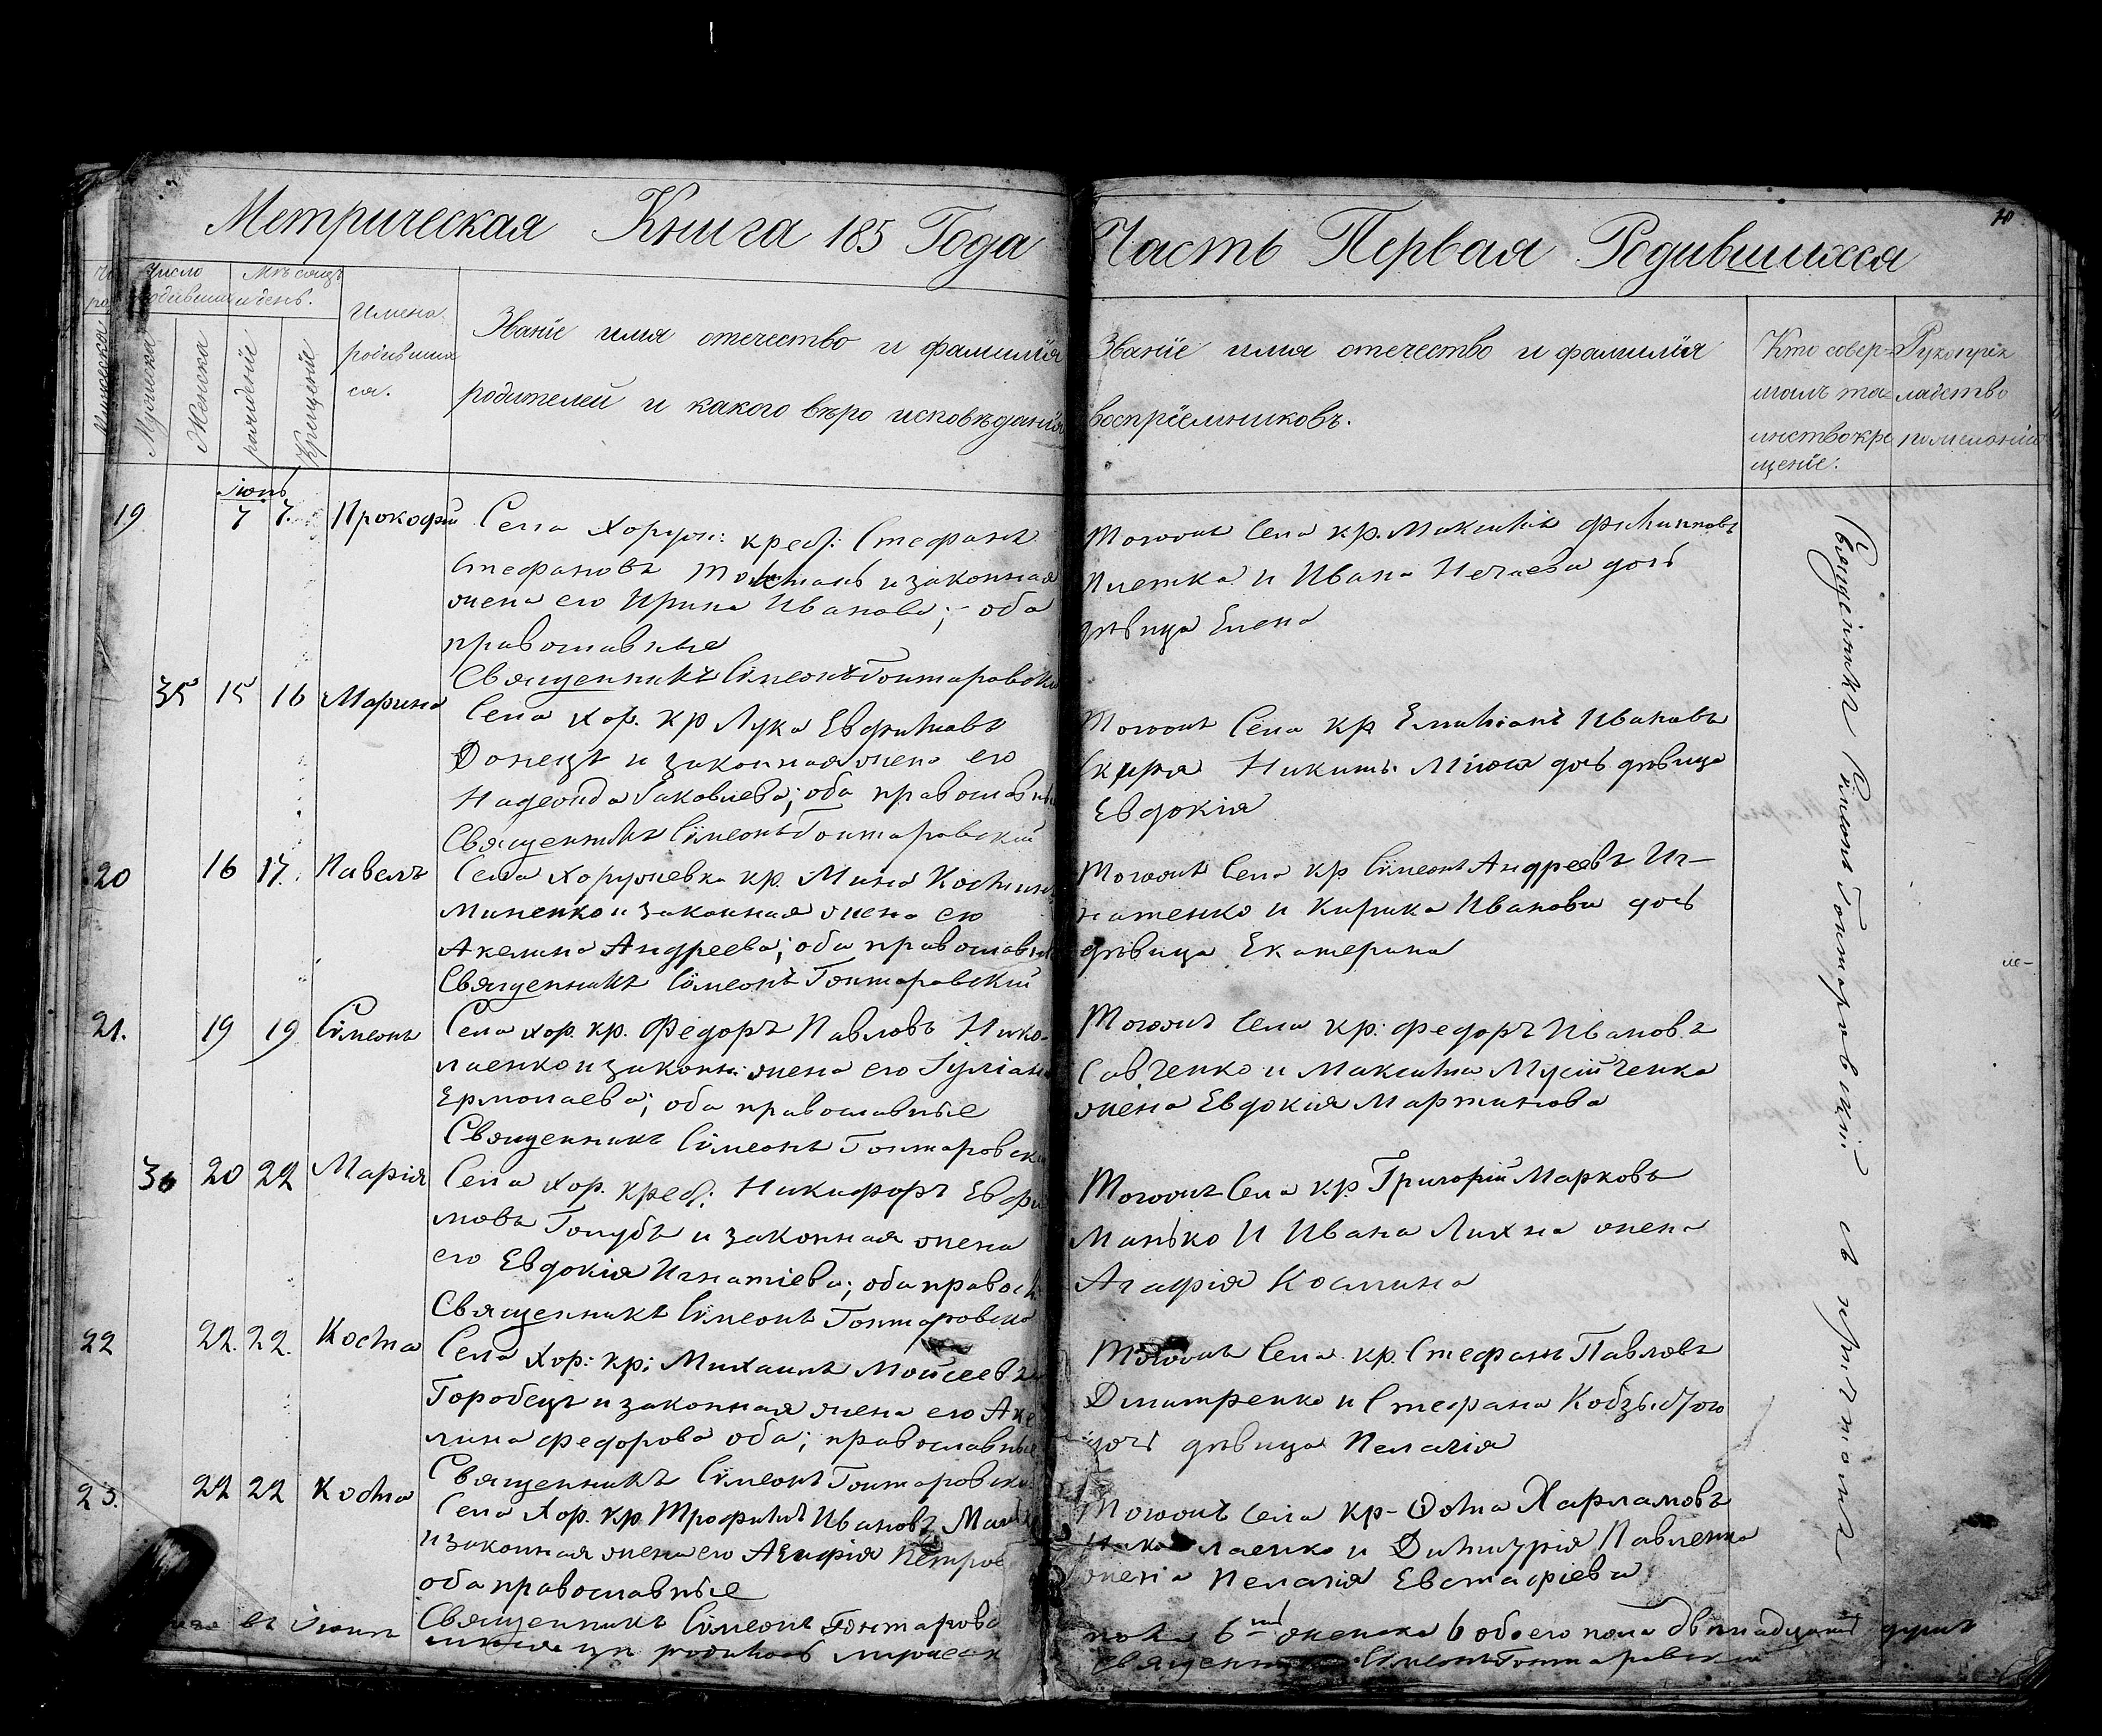 Метрическая Книга 185 Года Часть Первая Родившихся
10
Число
Мѣсяцъ
и день.
Мужеска
Женска
рожденіе
Крещеніе
Имена
родивших
ся.
Званіе имя отечество и фамилія
родителей и какого вѣро исповѣданія
Званіе имя отечество и фамилія
воспріемниковъ.
Кто совер-
шалъ та-
инство кре
щеніе.
Рукоприк
ладство
Іюнь
19 7 7. Прокофій
Села Хоруж: креб: Стефанъ
Стефановъ и законная
жена его Ирина Иванова; оба
православные
Священникъ Сімеонъ Гонтаровски
Тогожъ Села кр. Максимъ Филиповъ
Плетка и Ивана Нечаева дочь
дѣвица Елена
35 15 16 Марина
Села Хор. кр Лука Евфимовъ
Донецъ и законная жена его
Надежда Іаковлева; оба православны
Священникъ Сімеонъ Гонтаровскій
Тогожъ Села кр Емиліанъ Ивановъ
Никиты дочь дѣвица
Евдокія
20 16 17. Павелъ
Села Хоружевка кр. Мина Косминъ
Миненко и законная жена его
Акелина Андреева; оба православны
Священникъ Сімеонъ Гонтаровскій
Тогожъ Села кр Сімеонъ Андреевъ Иг-
натенко и Кирика Иванова дочь
дѣвица Екатерина
21. 19 19 Сімеонъ
Села хор. кр. Федоръ Павловъ Нико-
лаенко и законн: жена его Іуліана
Ермолаева; оба православные
Священникъ Сімеонъ Гонтаровски
Тогожъ Села кр: Федоръ Ивановъ
Савченко и Максима Мусійченка
жена Евдокія Мартинова
36 20 22 Марія
Села Хор. креб: Никифоръ Евфи
мовъ Голубъ и законная жена
его Евдокія Игнатіева; оба правосл:
Священникъ Сімеонъ Гонтаровски
Тогожъ Села кр. Григорій Марковъ
Манько и Ивана Лихна жена
Агафія Космина
22 22. 22. Косма
Села Хор: кр: Михаилъ Мойсеевъ
Горобецъ и законная жена его Аке
лина Федорова оба; православные
Священникъ Сімеонъ Гонтаровски
Тогожъ Села кр. Стефанъ Павловъ
Дмитренко и Стефана
дочь дѣвица Пелагія
23. 22 22 Косма
Села Хор. кр Трофимъ Ивановъ
и законная жена его Агафія Петров
оба православные
Священникъ Сімеонъ Гонтаровс
Тогожъ Села кр- Фома Харламовъ
Николаенко и Димитрія Павленка
жена Пелагія Евстафіева
Священникъ Сімеонъ Гонтаровскій
въ Іюнѣ
родилось мужеск
пола 6 женска 6 обоего пола двѣнадцать душъ
Сімеонъ Гонтаровскій